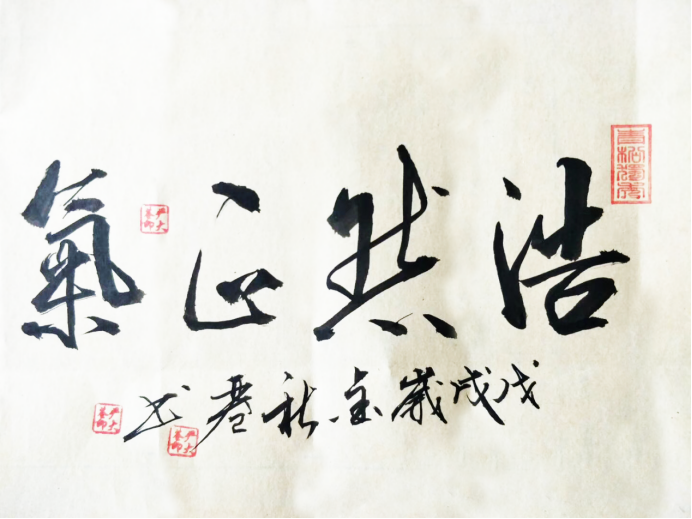 浩然正氣
戊戌歲金秋
書